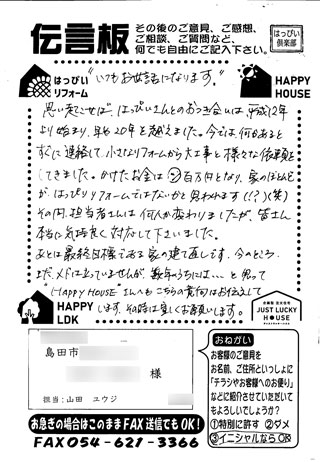 伝言板
その後のご意見、ご感想、
ご相談、ご質問など、
何でも自由にご記入下さい。
はっぴい
倶楽部
はっぴい
リフォーム
"いつもお世話になります。"
HAPPY
HOUSE
思い起こせば、はっぴいさんとのおつき合いは、平成12年
より始まり、早や20年を越えました。今では、何かあると
すぐに連絡して、小さなリフォームから大工事と様々な依頼を
してきました。かけたお金は②百万円となり、家のほとんど
が、はっぴいリフォームではないかと思われます(!?)(笑)
その間、担当者さんは何人か変わりましたが、皆さん
本当に気持良く対応して下さいました。
あとは最終目標である家の建て直しです。今のところ、
まだ、メドは立っていませんが、数年のうちには…と思って
"HAPPY HOUSE"さんへもこちらの意向はお伝えして
います。その時は宜しくお願いします。
HAPPY
LDK
JUST LUCKY
HOUSE
島田市
様
担当:山田 ユウジ
おねがい
お客様のご意見を
お名前、ご住所といっしょに
「チラシやお客様へのお便り」
などに紹介させていただいて
もよろしいでしょうか?
①特別に許す ②ダメ
③イニシャルならOK
お急ぎの場合はこのままFAX送信でもOK!
FAX054-621-3366